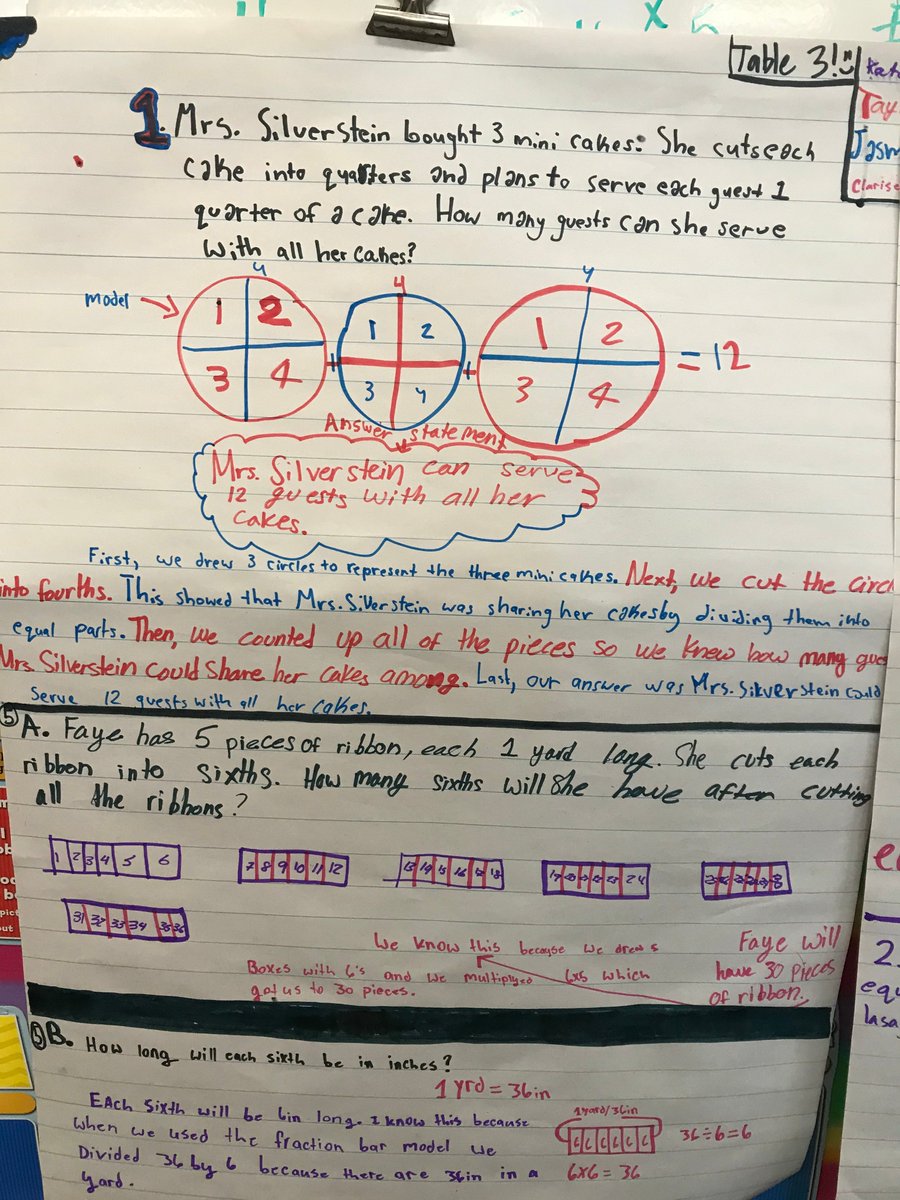 Table 3!
Tay
Jasm
Clarise
1. Mrs. Silverstein bought 3 mini cakes. She cuts each
cake into quarters and plans to serve each guest 1
quarter of a cake. How many guests can she serve
with all her cakes?
4 4 4
model
1 2 1 2 1 2
3 4 + 3 4 + 3 4 = 12
Answer statement
Mrs. Silverstein can serve
12 guests with all her
cakes.
First, we drew 3 circles to represent the three mini cakes. Next, we cut the circ
into fourths. This showed that Mrs. Silverstein was sharing her cakes by dividing them into
equal parts. Then, we counted up all of the pieces so we knew how many gues
Mrs. Silverstein could share her cakes among. Last, our answer was Mrs. Silverstein could
serve 12 guests with all her cakes.
5 A. Faye has 5 pieces of ribbon, each 1 yard long. She cuts each
ribbon into sixths. How many sixths will she have after cutting
all the ribbons?
1 2 3 4 5 6 7 8 9 10 11 12 13 14 15 16 17 18 24
31 32 33 34 35 36
We know this because we drew 5
Boxes with 6's and we multiplyed 6x5 which
got us to 30 pieces.
Faye will
have 30 pieces
of ribbon.
5 B. How long will each sixth be in inches?
1 yrd = 36in
Each sixth will be 6in long. I know this because
when we used the fraction bar model we
Divided 36 by 6 because there are 36in in a
yard.
1 yard/36in
6 6 6 6 6 6 36÷6=6
6x6=36
2.
equ
lasa